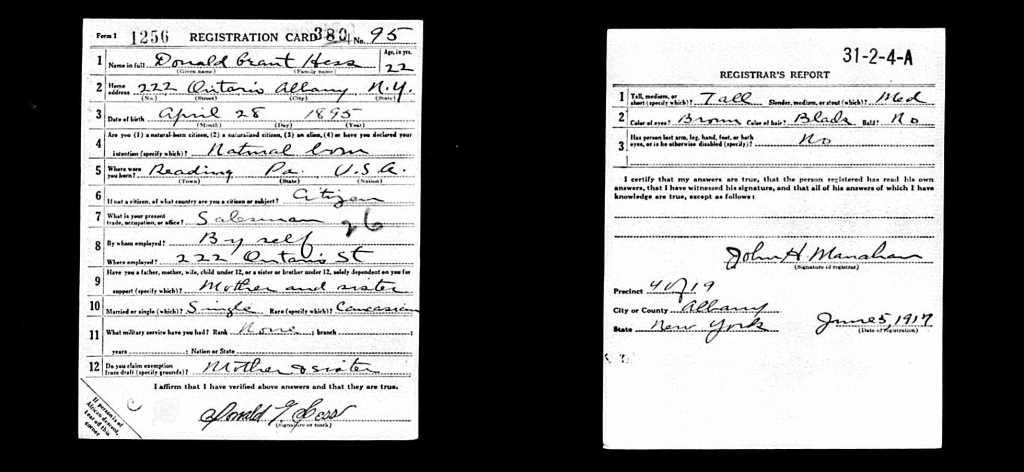 Form 1 1256 REGISTRATION CARD 380 No. 95
1 Name in full Donald Grant Hess Age, in yrs. 22
(Given name) (Family name)
2 Home address 222 Ontario Albany N.Y.
(No.) (Street) (City) (State)
3 Date of birth April 28 1895
(Month) (Day) (Year)
4 Are you (1) a natural-born citizen, (2) a naturalized citizen, (3) an alien, (4) or have you declared your
intention (specify which)? Natural born
5 Where were you born? Reading Pa. U.S.A.
(Town) (State) (Nation)
6 If not a citizen, of what country are you a citizen or subject? Citizen
7 What is your present trade, occupation, or office? Salesman 26
8 By whom employed? By self
Where employed? 222 Ontario St
9 Have you a father, mother, wife, child under 12, or a sister or brother under 12, solely dependent on you for
support (specify which)? Mother and sister
10 Married or single (which)? Single Race (specify which)? Caucasian
11 What military service have you had? Rank None ; branch ;
years ; Nation or State
12 Do you claim exemption from draft (specify grounds)? Mother & sister
I affirm that I have verified above answers and that they are true.
Donald G. Hess
(Signature or mark)
If person is of African descent, tear off this corner
31-2-4-A
REGISTRAR'S REPORT
1 Tall, medium, or short (specify which)? Tall Slender, medium, or stout (which)? Med
2 Color of eyes? Brown Color of hair? Black Bald? No
3 Has person lost arm, leg, hand, foot, or both
eyes, or is he otherwise disabled (specify)? No
I certify that my answers are true, that the person registered has read his own
answers, that I have witnessed his signature, and that all of his answers of which I have
knowledge are true, except as follows:
John H. Manahan
(Signature of registrar)
Precinct 4 of 19
City or County Albany
State New York June 5, 1917
(Date of registration)